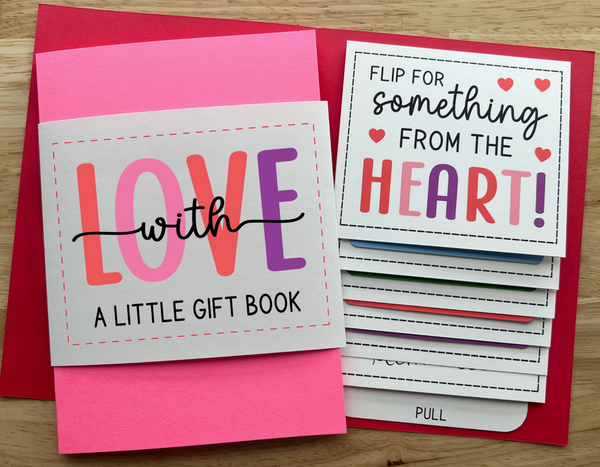 LOVE
with
A LITTLE GIFT BOOK
FLIP FOR
something
FROM THE
HEART!
PULL